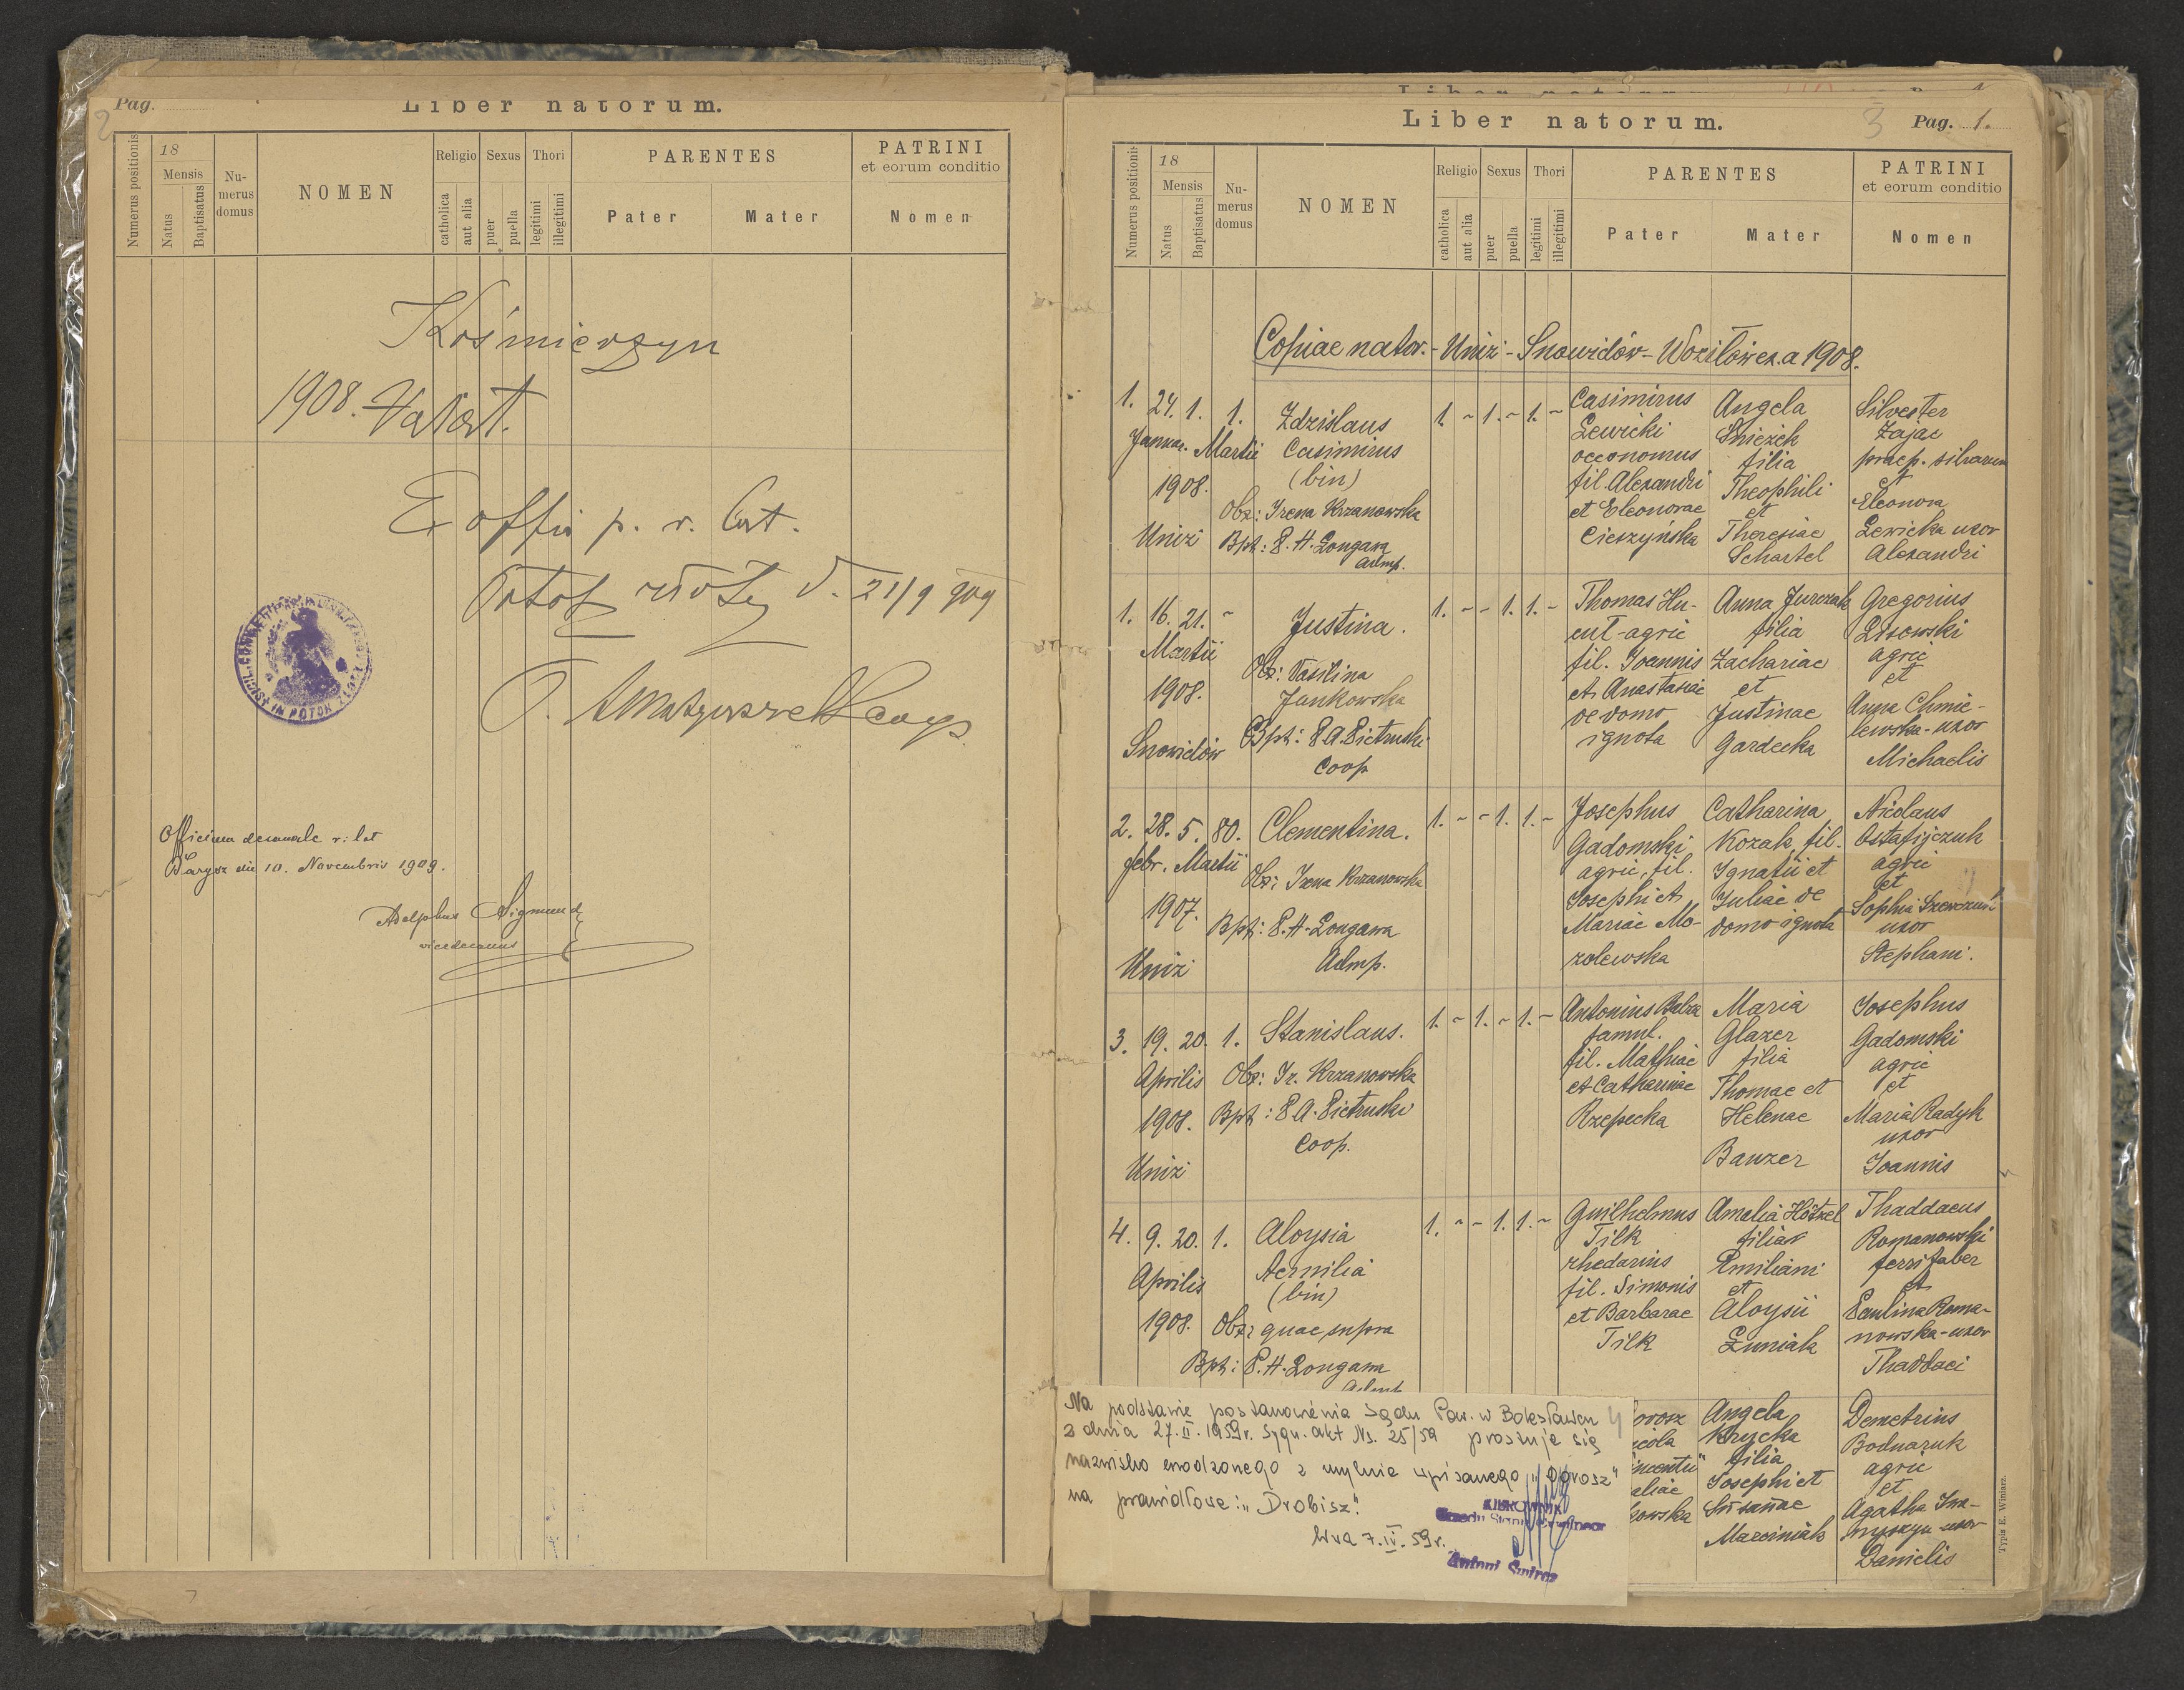 Pag.
Liber natorum.
2
Numerus positionis
18
Mensis
Natus
Baptisatus
Nu-
merus
domus
NOMEN
Religio
catholica
aut alia
Sexus
puer
puella
Thori
legitimi
illegitimi
PARENTES
Pater
Mater
PATRINI
et eorum conditio
Nomen
Kośmierzyn
1908. Natort.
E offi p. r. lat.
Potok złoty d. 21/9 909
Officium decanale r: lat
Barysz die 10. Novembris 1909.
Adolphus Sigmund
vicedecanus
Liber natorum.
3
Pag. 1.
Numerus positionis
18
Mensis
Natus
Baptisatus
Nu-
merus
domus
NOMEN
Religio
catholica
aut alia
Sexus
puer
puella
Thori
legitimi
illegitimi
PARENTES
Pater
Mater
PATRINI
et eorum conditio
Nomen
Copiae nator. - Uniz - Snowidów - Woziłów ex a 1908.
1. 24. 1. 1.
Januar. Martii
1908.
Uniz
Zdzislaus
Casimirus
(bin)
Obs: Irena Krzanowska
Bpt: P. H. Longawa
Admp.
1. ~ 1. ~ 1. ~
Casimirus
Lewicki
oeconomus
fil. Alexandri
et Eleonorae
Cieszyńska
Angela
Śnieżek
filia
Theophili
et
Theresiae
Schartel
Silvester
Zając
praep. silvarum
et
Eleonora
Lewicka uxor
Alexandri
1. 16. 21. ~
Martii
1908.
Snowidów
Justina.
Obs: Vasilina
Jankowska
Bpt: P. A. Pietruski
Coop
1. ~ ~ 1. 1. ~
Thomas Hu-
cul - agric
fil. Joannis
et Anastasiae
de domo
ignota
Anna Jurczak
filia
Zachariae
et
Justinae
Gardecka
Gregorius
Lisowski
agric
et
Anna Chmie-
lewska - uxor
Michaelis
2. 28. 5. 80.
febr. Martii
1907.
Uniz
Clementina.
Obs: Irena Krzanowska
Bpt: P. H. Longawa
Admp.
1. ~ ~ 1. 1. ~
Josephus
Gadomski
agric, fil.
Josephi et
Mariae Mo-
zolewska
Catharina
Kozak, fil.
Ignatii et
Juliae de
domo ignota
Nicolaus
Ostafijczuk
agric
et
Sophia Szewczuk
uxor
Stephani.
3. 19. 20. 1.
Aprilis
1908.
Uniz
Stanislaus.
Obs: Ir. Krzanowska
Bpt: P. A. Pietruski
Coop.
1. ~ 1. ~ 1. ~
Antonius Balza
famul.
fil. Mathiae
et Catharinae
Rzepecka
Maria
Glazer
filia
Thomae et
Helenae
Banzer
Josephus
Gadomski
agric
et
Maria Radyk
uxor
Joannis
4. 9. 20. 1.
Aprilis
1908.
Aloysia
Aemilia
(bin)
Obs: quae supra
Bpt: P. H. Longawa
Admp
1. ~ ~ 1. 1. ~
Guilhelmus
Tilk
rhedarius
fil. Simonis
et Barbarae
Tilk
Amalia Hötzel
filia
Emiliani
et
Aloysii
Łuniak
Thaddaeus
Romanowski
ferrifaber
et
Paulina Roma-
nowska - uxor
Thaddaei
Angela
Krycka
filia
Josephi et
Susannae
Marciniak
Demetrius
Bodnaruk
agric
et
Agatha
uxor
Danielis
Na podstawie postanowienia Sądu Pow. w Bolesławcu
z dnia 27.II.1959r. sygn. akt Ns. 25/59 prostuje się
nazwisko urodzonego z mylnie wpisanego "Ogrosz"
na prawidłowe: "Drobisz".
Lwa 7.IV.59r.
KIEROWNIK
Urzędu Stanu Cywilnego
Typis E. Winiarz.